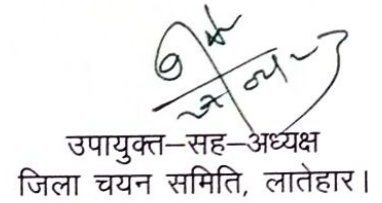 उपायुक्त–सह–अध्यक्ष
जिला चयन समिति, लातेहार।